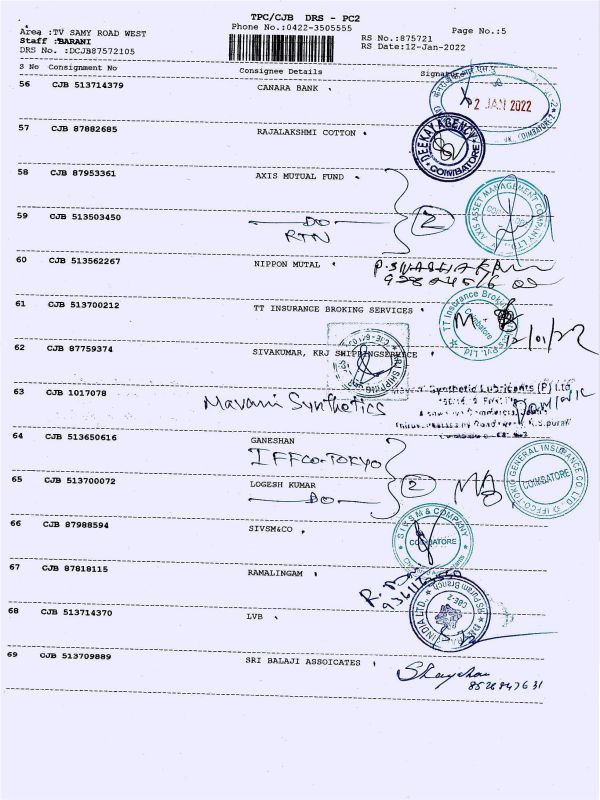 TPC/CJB DRS - PC2
Area :TV SAMY ROAD WEST
Phone No.:0422-3505555
Page No.:5
Staff :BARANI
RS No.:875721
DRS No. :DCJB87572105
RS Date:12-Jan-2022
S No Consignment No Consignee Details Signature
56 CJB 513714379 CANARA BANK
2 JAN 2022
57 CJB 87882685 RAJALAKSHMI COTTON
DEEKAY AGENCY
COIMBATORE
58 CJB 87953361 AXIS MUTUAL FUND
AXIS ASSET MANAGEMENT COMPANY LTD.
59 CJB 513503450 DO
RTN
2
60 CJB 513562267 NIPPON MUTAL
61 CJB 513700212 TT INSURANCE BROKING SERVICES
TT Insurance Broking
Coimbatore
Pvt. Ltd
12/01/22
62 CJB 87759374 SIVAKUMAR, KRJ SHIPPINGSERVICE
63 CJB 1017078 Mavani Synthetics
Synthetic Lubricants (P) Ltd
64 CJB 513650616 GANESHAN
IFFCO-TOKYO
IFFCO-TOKIO GENERAL INSURANCE CO LTD
COIMBATORE
65 CJB 513700072 LOGESH KUMAR
DO
2
66 CJB 87988594 SIVSM&CO
SIVSM & COMPANY
COIMBATORE
67 CJB 87818115 RAMALINGAM
68 CJB 513714370 LVB
INDIA LTD.
RSPuram Branch
CBE-2
69 CJB 513709889 SRI BALAJI ASSOICATES